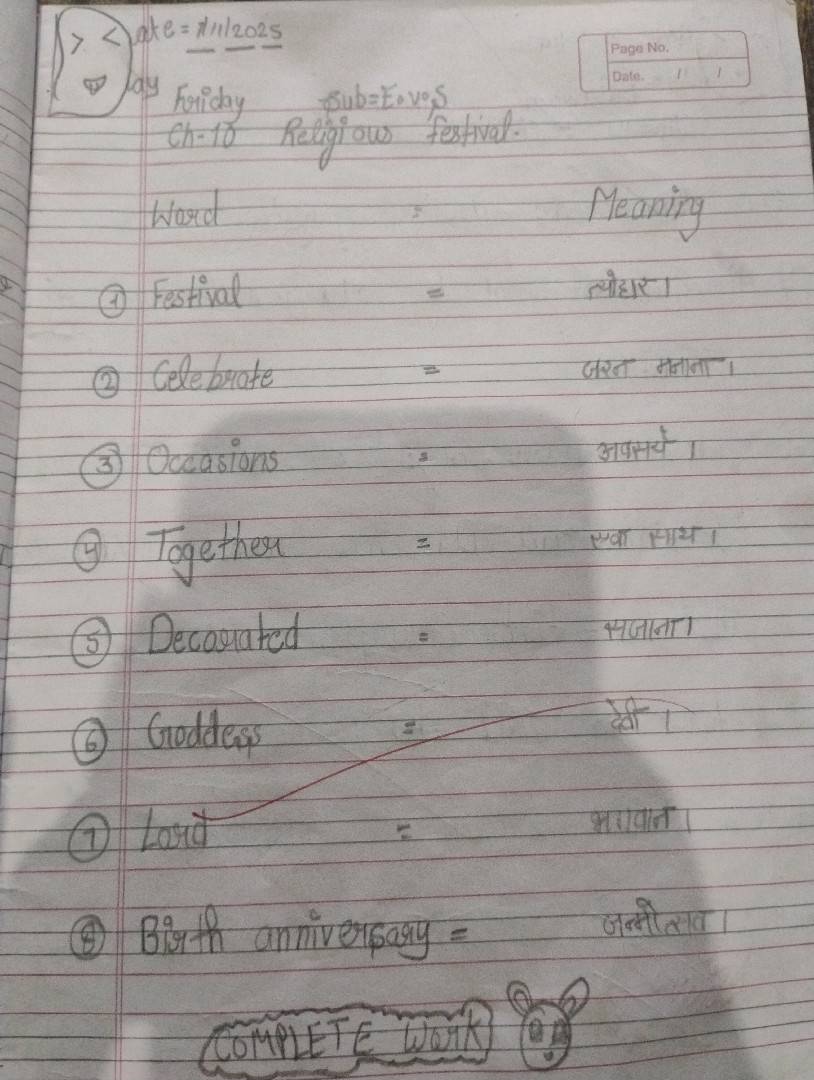 Date = 7/11/2025
Page No.
Date. / /
Day Friday Sub=E.v.S
Ch-10 Religious festival.
Word = Meaning
① Festival = त्योहार।
② Celebrate = जश्न मनाना।
③ Occasions =
④ Together = एक साथ।
⑤ Decorated = सजाना।
⑥ Goddess = देवी।
⑦ Lord = भगवान।
⑧ Birth anniversary = जन्मोत्सव।
COMPLETE Work